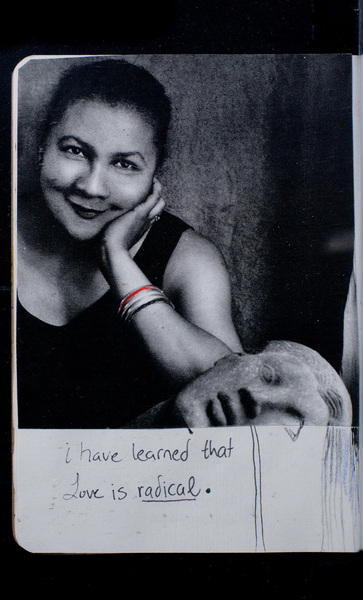 i have learned that
Love is radical.